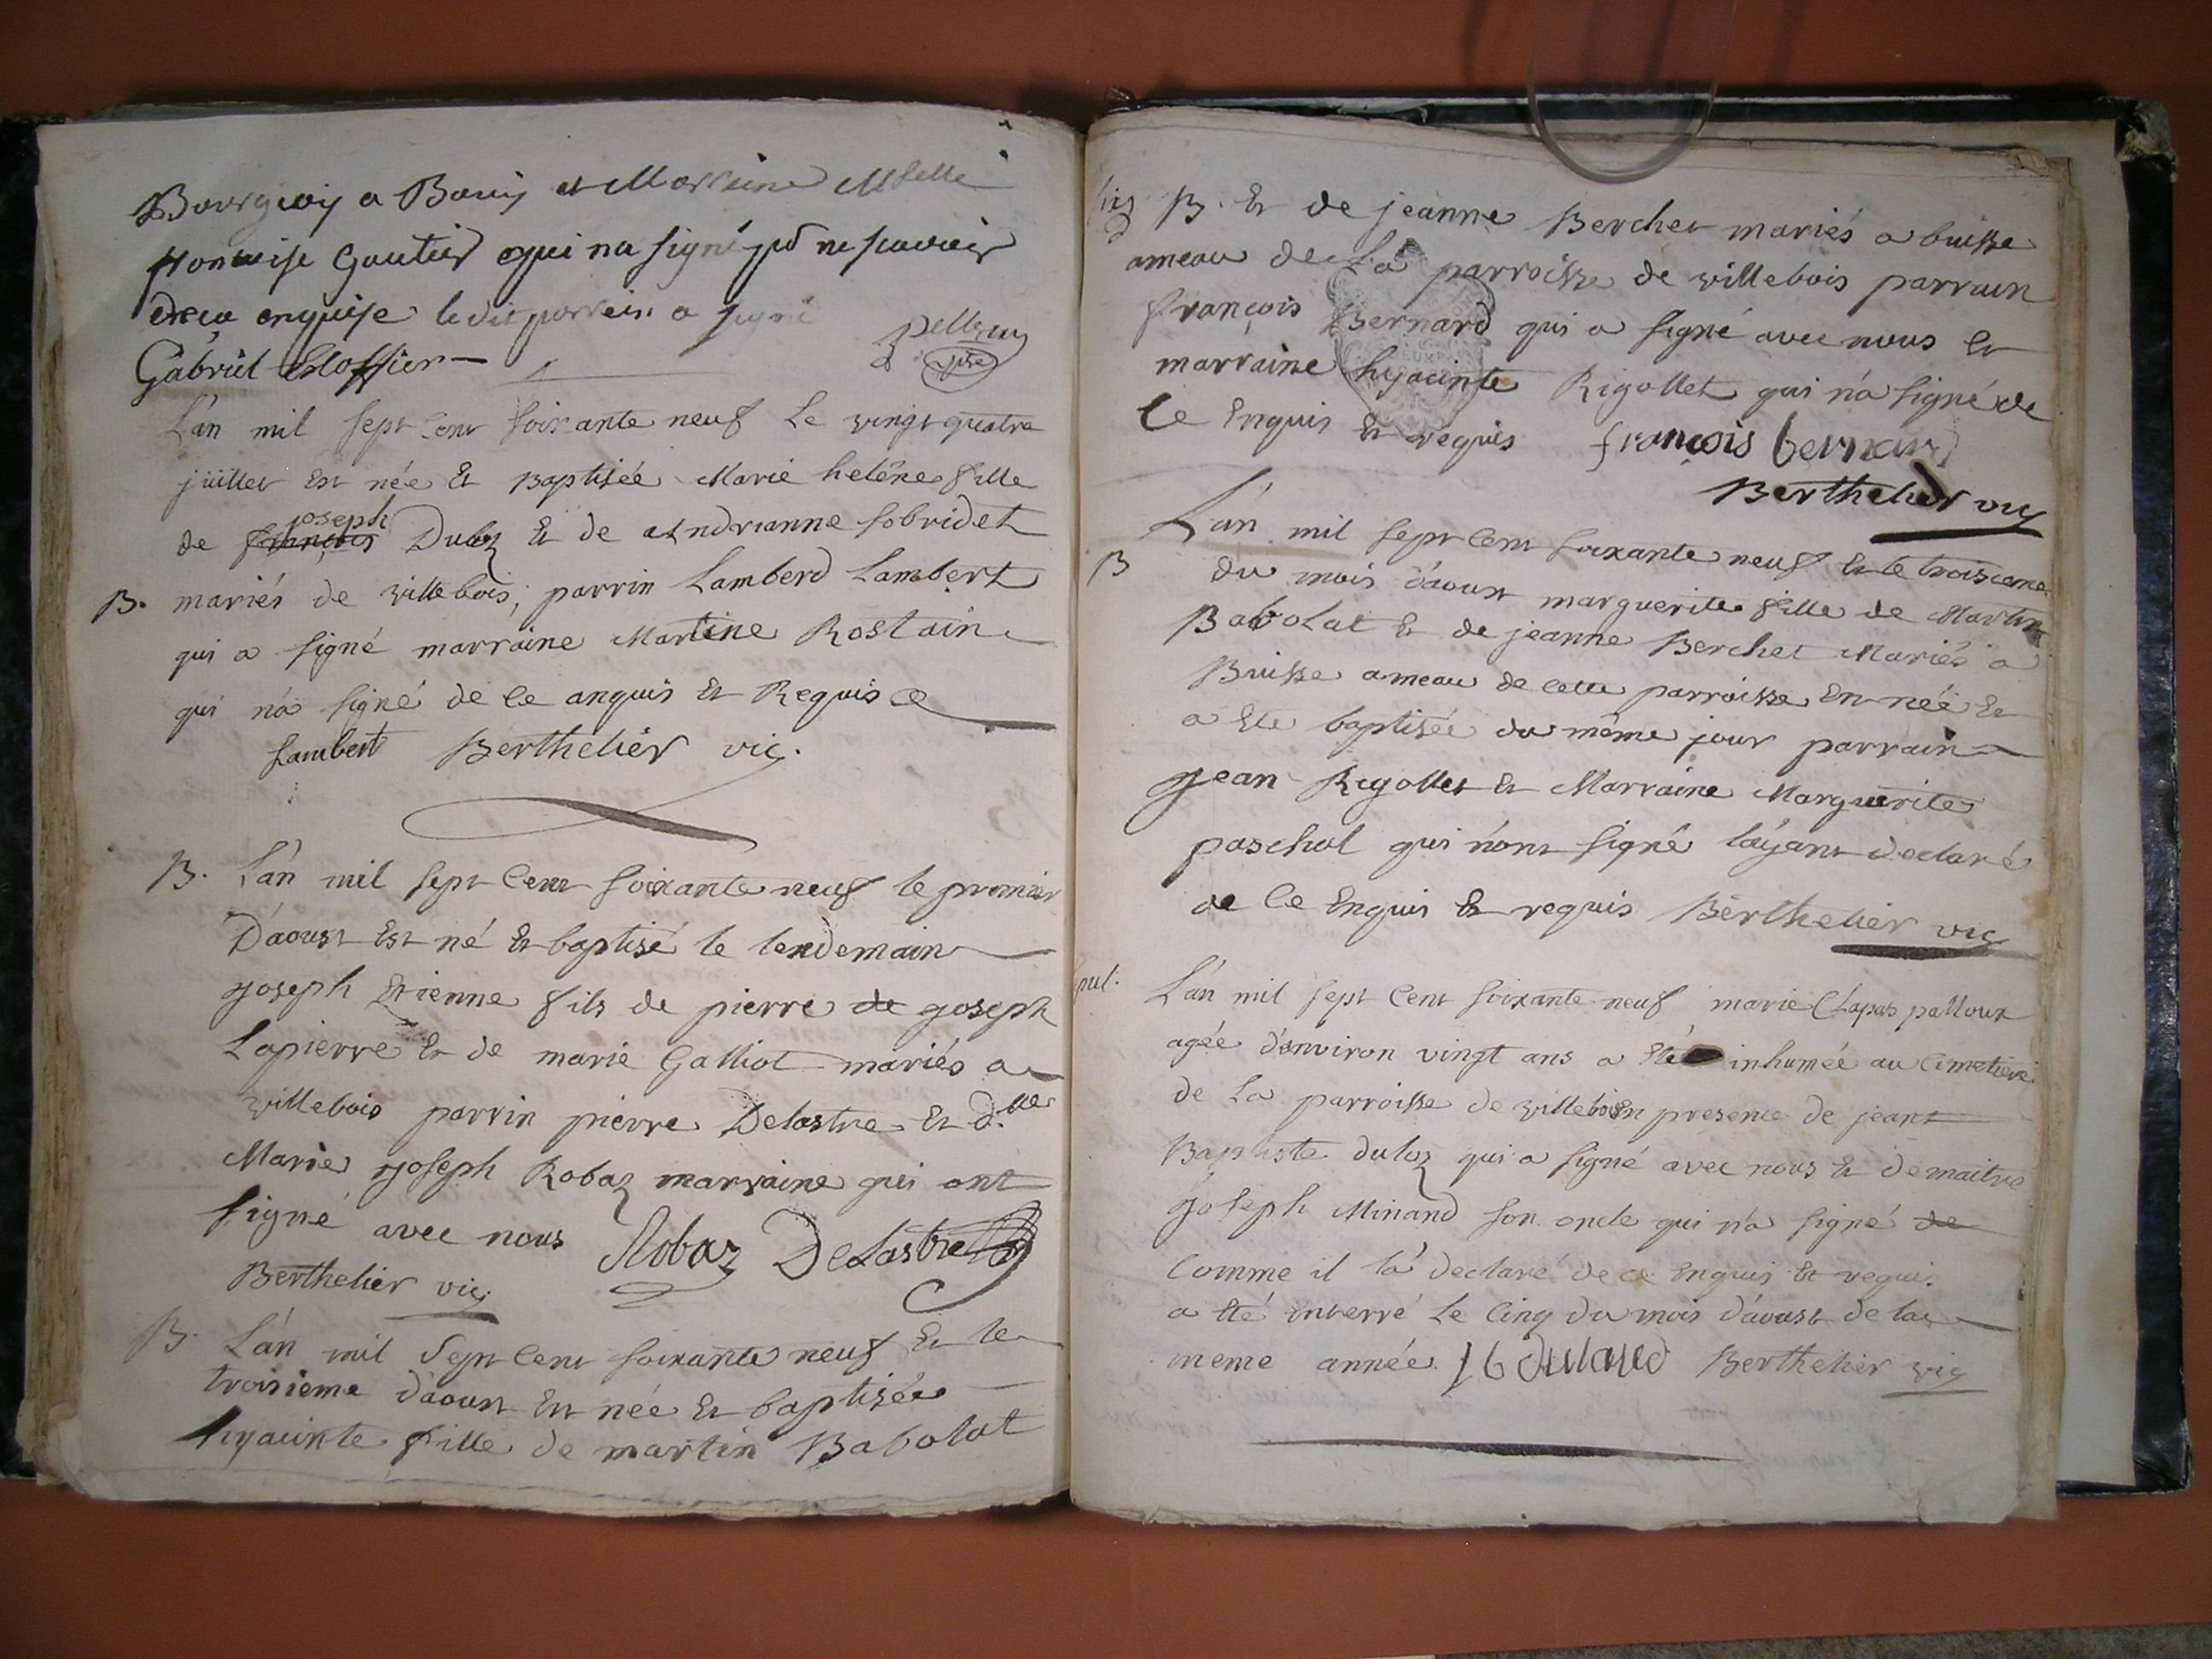 Bourgeois a et Marraine Mselle
françoise Gautier qui na signé pr ne scavoir
de ce enquise ledit parrein a signé
Gabriel
L'an mil sept Cent soixante neuf Le vingt quatre
juillet Est née Et Baptisée Marie heléne fille
de françois joseph Duloz Et de Andrianne sobridet
B. mariés de villebois, parrin Lamberd Lambert
qui a signé marraine Martine Rostain
qui n'a signé de Ce anquis Et Requis
Lambert Berthelier vic.
B. L'an mil sept Cent soixante neuf le premier
D'aoust Est né Et baptisé le lendemain
joseph Etienne fils de pierre de joseph
Lapierre Et de marie Galliot mariés a
villebois parrin pierre Delastre Et d.lle
Marie joseph Robaz marraine qui ont
signé avec nous Robaz Delastre
Berthelier vic.
B. L'an mil Sept Cent soixante neuf Et le
troisieme d'aoust Est née Et baptisée
hyacinte fille de martin Babolat
B. Et de jeanne Berchet mariés a buisse
ameau de La parroisse de villebois parrain
françois Bernard qui a signé avec nous Et
marraine hyacinte Rigollet qui n'a signé de
Ce Enquis Et requis françois bernard
Berthelier vic
L'an mil sept Cent soixante neuf Et le troisieme
B du mois d'aoust marguerite fille de Martin
Babolat Et de jeanne Berchet Mariés a
Buisse ameau de cette parroisse Est née Et
a Ete baptisée du même jour parrain
jean Rigollet Et Marraine Marguerite
paschal qui n'ont signé l'ayant declaré
de Ce Enquis Et requis Berthelier vic
sepul. L'an mil sept Cent soixante neuf marie Clapas palloux
agée d'environ vingt ans a Eté inhumée au Cimetiere
de La parroisse de villebois En presence de jean
Baptiste duloz qui a signé avec nous Et de maitre
joseph Minand son oncle qui n'a signé de
Comme il l'a declaré de ce Enquis Et requis
a Eté enterré Le Cinq du mois d'aoust de la
meme année Berthelier vic